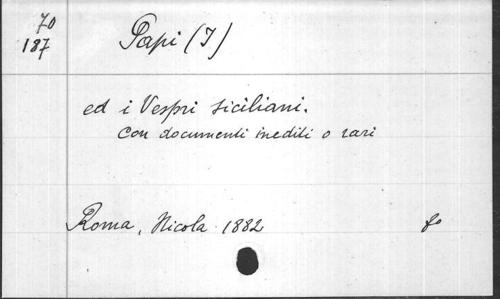 70
187
Papi (I)
ed i Vespri siciliani.
con documenti inediti o rari
Roma, Nicola 1882 fo